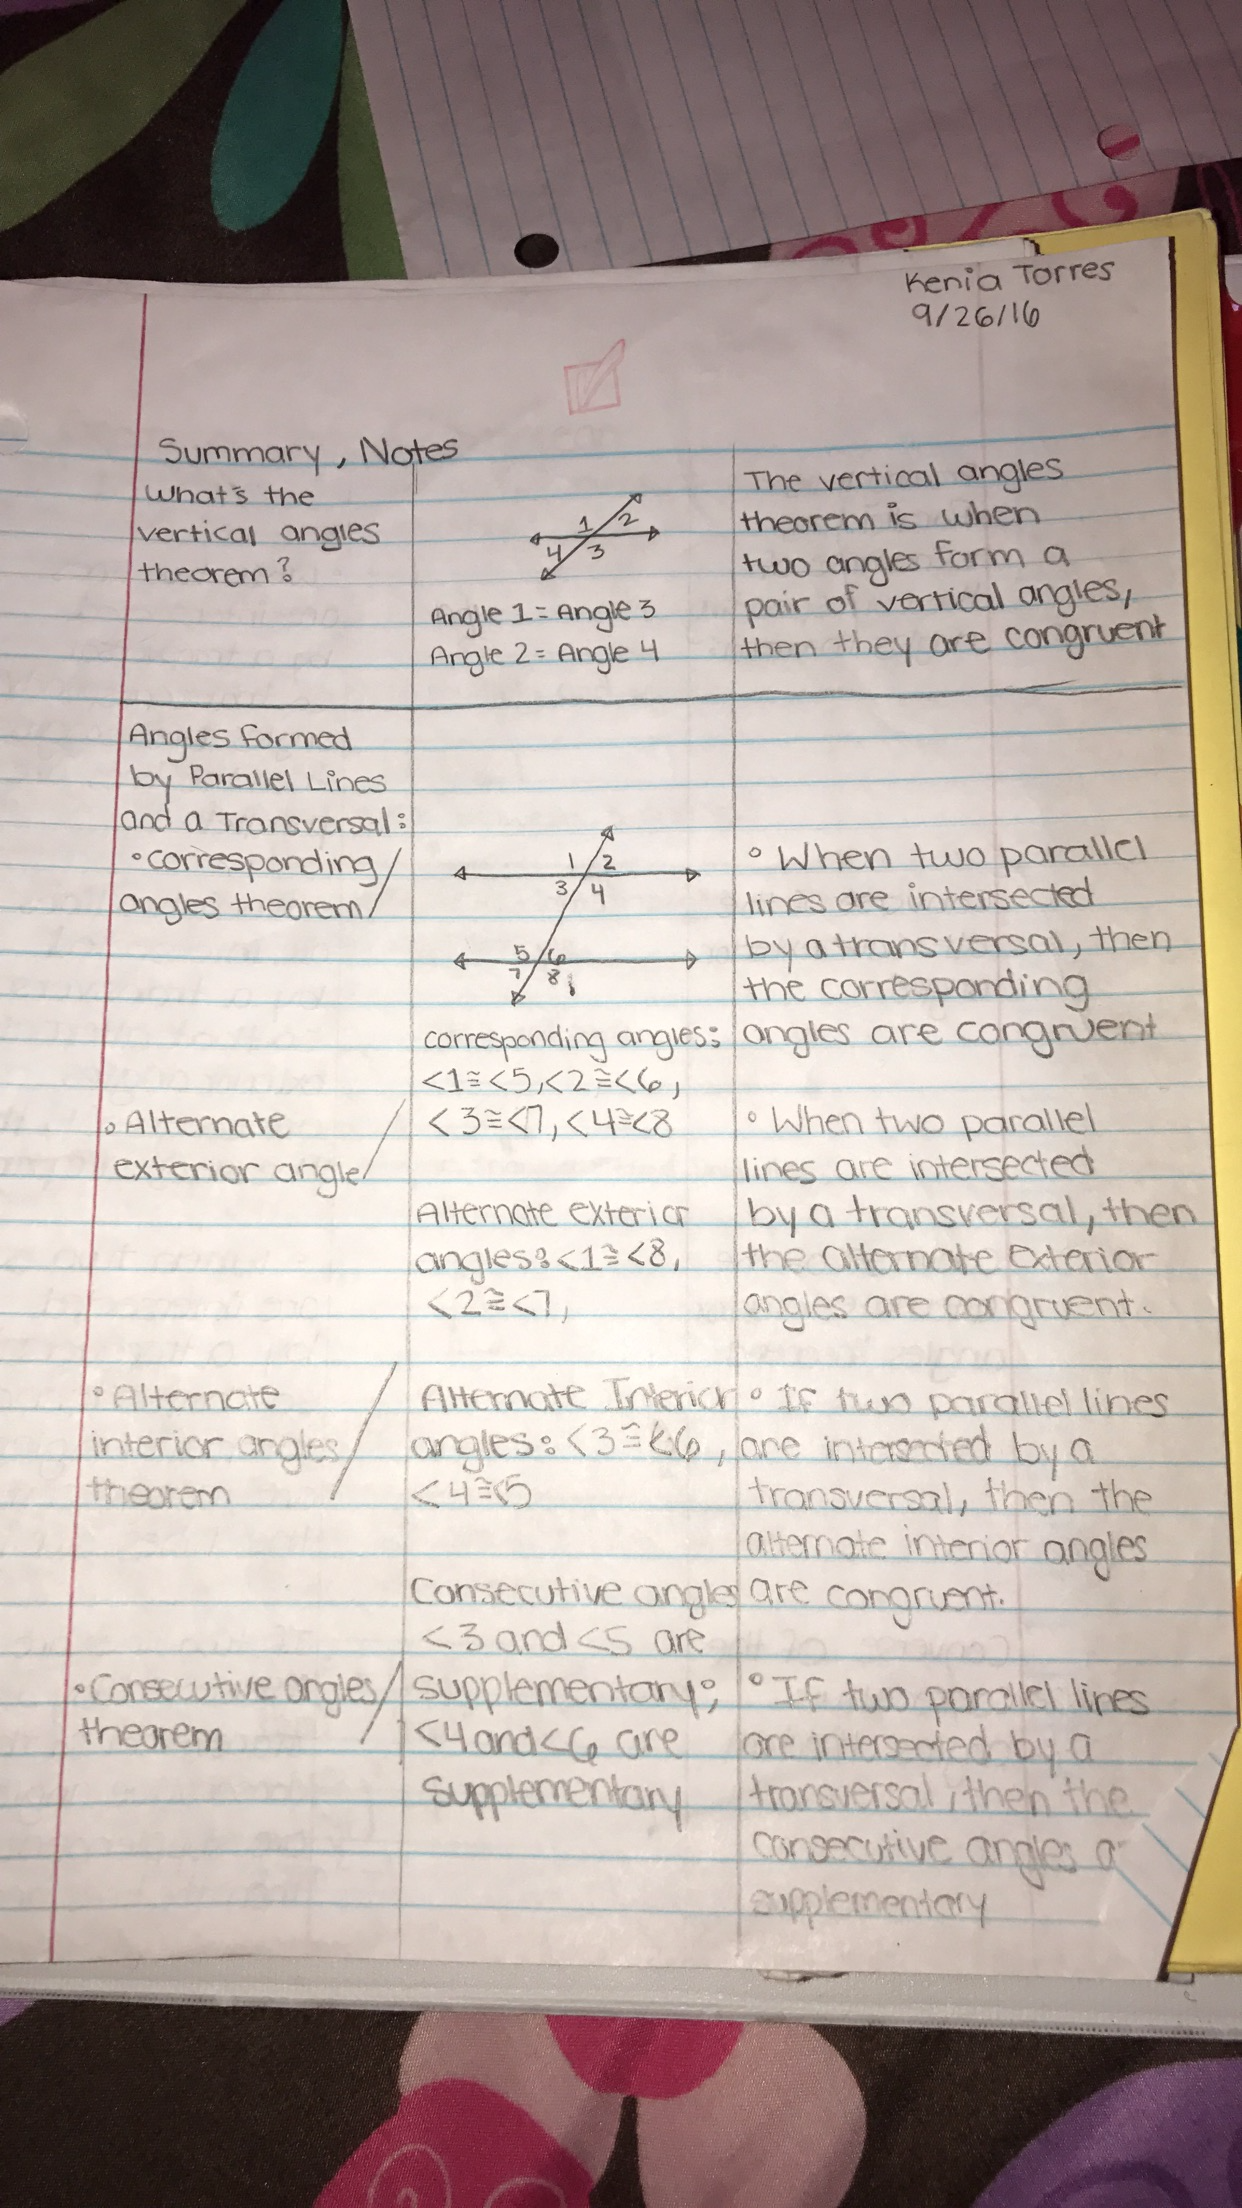 Kenia Torres
9/26/16
Summary, Notes
What's the
vertical angles
theorem?
1 2
4 3
Angle 1 = Angle 3
Angle 2 = Angle 4
The vertical angles
theorem is when
two angles form a
pair of vertical angles,
then they are congruent
Angles formed
by Parallel Lines
and a Transversal:
• corresponding
angles theorem
1 2
3 4
5 6
7 8
corresponding angles:
<1≅<5, <2≅<6,
<3≅<7, <4≅<8
° When two parallel
lines are intersected
by a transversal, then
the corresponding
angles are congruent
• Alternate
exterior angle
Alternate exterior
angles: <1≅<8,
<2≅<7,
° When two parallel
lines are intersected
by a transversal, then
the alternate exterior
angles are congruent.
• Alternate
interior angles
theorem
Alternate Interior
angles: <3≅<6,
<4≅<5
° If two parallel lines
are intersected by a
transversal, then the
alternate interior angles
are congruent.
• Consecutive angles
theorem
Consecutive angles
<3 and <5 are
supplementary;
<4 and <6 are
supplementary
° If two parallel lines
are intersected by a
transversal, then the
consecutive angles
supplementary